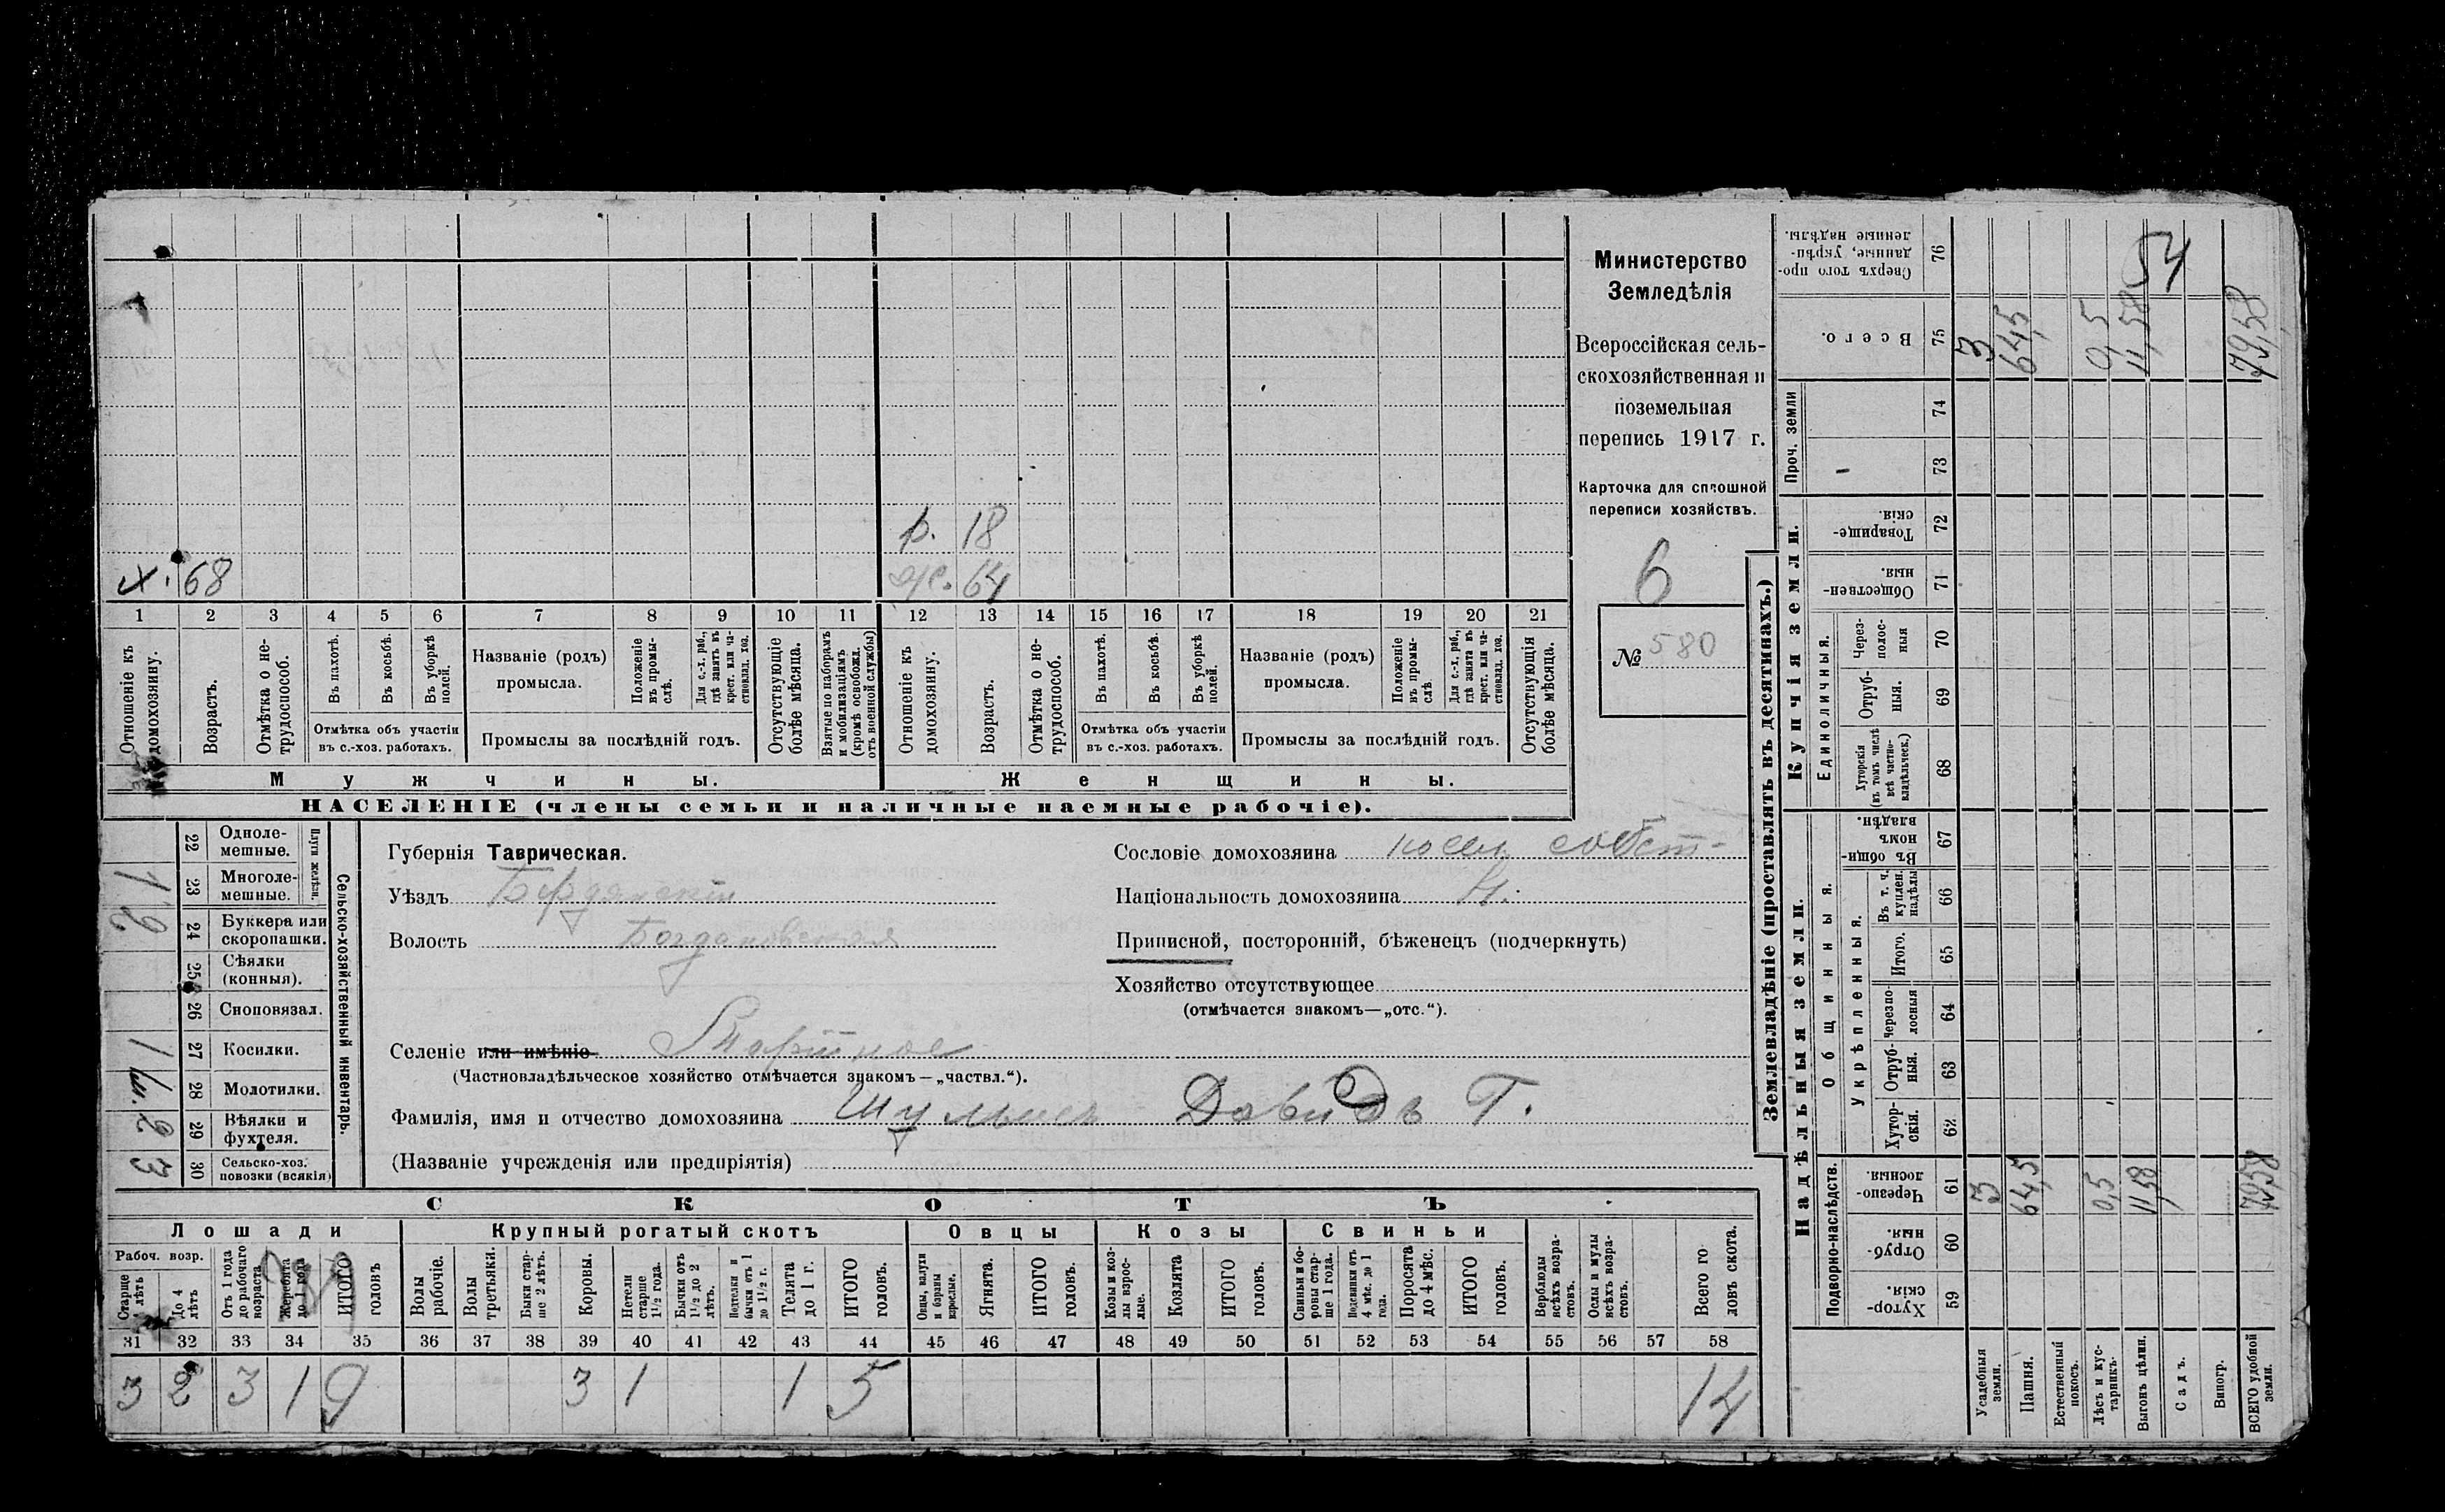 Министерство
Земледѣлія
Всероссійская сель-
скохозяйственная и
поземельная
перепись 1917 г.
Карточка для сплошной
переписи хозяйствъ.
6
№ 580
р. 18
х. 68
ж. 64
1 2 3 4 5 6 7 8 9 10 11 12 13 14 15 16 17 18 19 20 21
Отношеніе къ домохозяину.
Возрастъ.
Отмѣтка о не-трудоспособ.
Въ пахотѣ.
Въ косьбѣ.
Въ уборкѣ полей.
Отмѣтка объ участіи
въ с.-хоз. работахъ.
Названіе (родъ)
промысла.
Положеніе въ промы-слѣ.
Для с.-х. раб., гдѣ занятъ въ крест. или ча-стновлад. хоз.
Промыслы за послѣдній годъ.
Отсутствующіе болѣе мѣсяца.
Взятые по наборамъ и мобилизаціямъ (кромѣ освобожд. отъ военной службы)
Отношеніе къ домохозяину.
Возрастъ.
Отмѣтка о не-трудоспособ.
Въ пахотѣ.
Въ косьбѣ.
Въ уборкѣ полей.
Отмѣтка объ участіи
въ с.-хоз. работахъ.
Названіе (родъ)
промысла.
Положеніе въ промы-слѣ
Для с.-х. раб., гдѣ занята въ крест. или ча-стновлад. хоз.
Промыслы за послѣдній годъ.
Отсутствующія болѣе мѣсяца.
Мужчины.
Женщины.
НАСЕЛЕНІЕ (члены семьи и наличные наемные рабочіе).
Сельско-хозяйственный инвентарь.
Плуги желѣзн.
22 Одноле-мешные.
23 Многоле-мешные. 1
24 Буккера или скоропашки. 2
25 Сѣялки (конныя).
26 Сноповязал.
27 Косилки. 1
28 Молотилки.
29 Вѣялки и фухтеля. 2
30 Сельско-хоз. повозки (всякія) 3
Губернія Таврическая.
Уѣздъ Бердянскій
Волость Богдановская
Селеніе или имѣніе
(Частновладѣльческое хозяйство отмѣчается знакомъ—„частвл.“).
Фамилія, имя и отчество домохозяина Давидъ Г.
(Названіе учрежденія или предпріятія)
Сословіе домохозяина посел. собст-
Національность домохозяина Н.
Приписной, посторонній, бѣженецъ (подчеркнуть)
Хозяйство отсутствующее
(отмѣчается знакомъ—„отс.“).
СКОТЪ
Лошади
Крупный рогатый скотъ
Овцы
Козы
Свиньи
Рабоч. возр.
Старше 4 лѣтъ
До 4 лѣтъ
Отъ 1 года до рабочаго возраста
Жеребята до 1 года
ИТОГО головъ
Волы рабочіе.
Волы третьяки.
Быки стар-ше 2 лѣтъ.
Коровы.
Нетели старше 1½ года.
Бычки отъ 1½ до 2 лѣтъ.
Нетелики и бычки отъ 1 до 1½ г.
Телята до 1 г.
ИТОГО головъ.
Овцы, валухи и бараны взрослые.
Ягнята.
ИТОГО головъ.
Козы и коз-лы взрос-лые.
Козлята
ИТОГО головъ.
Свиньи и бо-ровы стар-ше 1 года.
Подсвинки отъ 4 мѣс. до 1 года.
Поросята до 4 мѣс.
ИТОГО головъ.
Верблюды всѣхъ возра-стовъ.
Ослы и мулы всѣхъ возра-стовъ.
Всего го ловъ скота.
31 32 33 34 35 36 37 38 39 40 41 42 43 44 45 46 47 48 49 50 51 52 53 54 55 56 57 58
3 2 3 1 9 3 1 1 5 14
Землевладѣніе (проставлять въ десятинахъ.)
Надѣльныя земли.
Купчія земли.
Проч. земли
Подворно-наслѣдств.
Общинныя.
Укрѣпленныя.
Единоличныя.
Хутор-скія. 59
Отруб-ныя. 60
Черезпо-лосныя. 61
Хутор-скія. 62
Отруб-ныя. 63
Черезпо-лосныя 64
Итого. 65
Въ т. ч. куплен. надѣлы 66
Въ общи-номъ владѣн. 67
Хуторскія (въ томъ числѣ всѣ частно-владѣльческ.) 68
Отруб-ныя. 69
Через-полос-ныя 70
Обществен-ныя. 71
Товарище-скія. 72
73
74
Всего. 75
Сверхъ того про-данные, укрѣп-ленные надѣлы. 76
Усадебныя земли. 3 3
Пашня. 64,5 64,5
Естественный покосъ.
Лѣсъ и кус-тарникъ. 0,5 0,5
Выгонъ цѣлин. 11,58 11,58
Садъ.
Виногр.
ВСЕГО удобной земли. 79,58 79,58
54